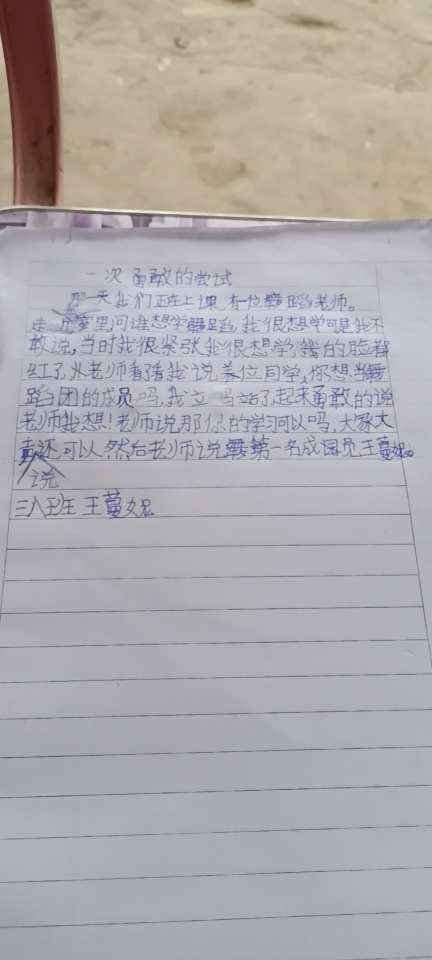 一次勇敢的尝试
那一天我们正在上课,有一位舞蹈老师。
走 室里问谁想学舞蹈,我很想学可是我不
敢说,当时我很紧张我很想学,我的脸都
红了,从老师看了看我说,美位同学,你想当舞
蹈团的成员吗,我立马站了,起来勇敢的说
老师我想!老师说那你的学习可以吗,大家大
还可以,然后老师说舞第一名成园员王蔓妮。
说
三八班 王蔓妮